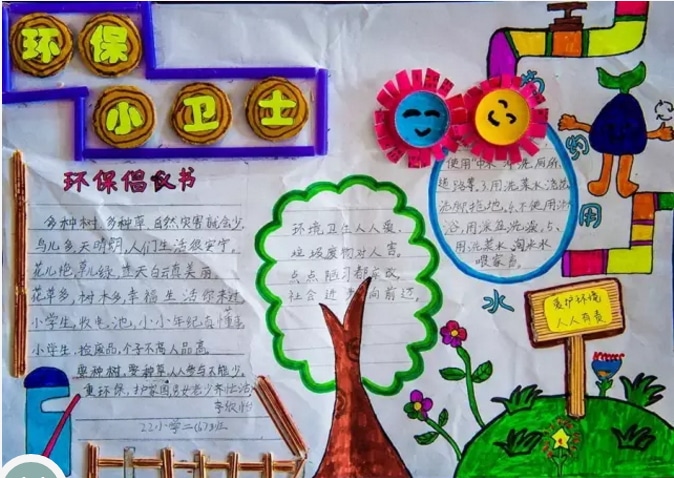 环保
小卫士
环保倡议书
多种树、多种草、自然灾害就会少。
鸟儿多,天晴朝,人们生活很安宁。
花儿艳,草儿绿,蓝天白云真美丽。
花草多,树木多,幸福生活你来过。
小学生,收电池,小小年纪真懂事
小学生,捡废品,个子不高人品高。
要种树,要种草,人人参与不能少。
重环保,护家园,男女老少齐
22小学二(6)班
环境卫生人人爱,
垃圾废物对人害。
点点陋习都
社会进步向前迈。
节
约
用
水
使用"中水"冲洗厕所
道路等。3.用洗菜水浇花
浴,用淋
用洗菜水
喂家禽。
爱护环境
人人有责